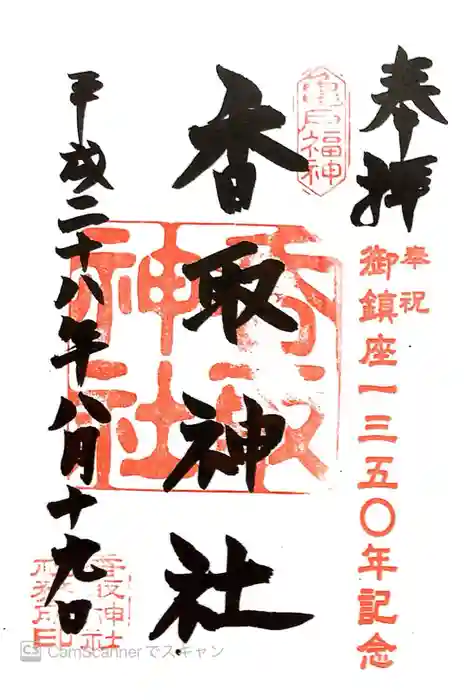 奉拝
奉祝
御鎮座一三五〇年記念
亀戸福神
香取神社
香取神社
平成二十八年八月十九日
香取神社
社務所印
CS CamScanner でスキャン